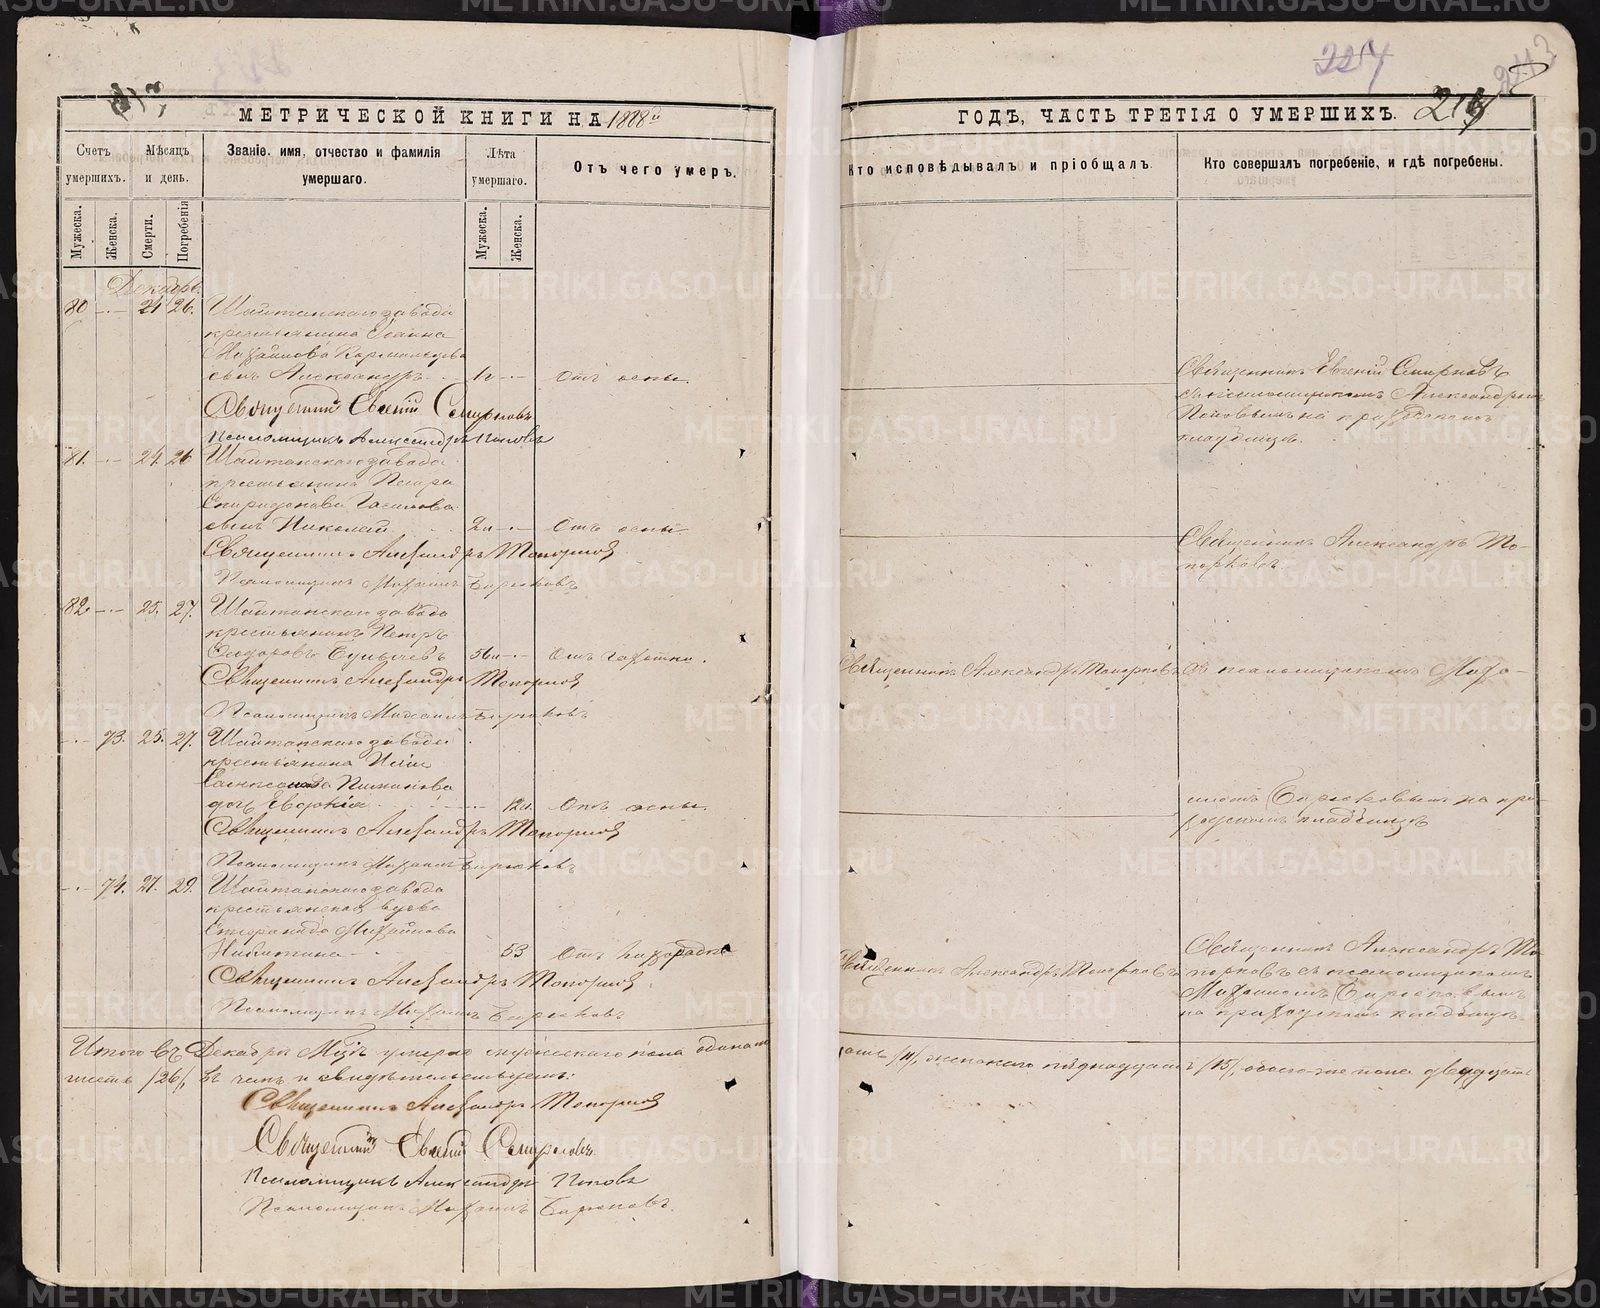 МЕТРИЧЕСКОЙ КНИГИ НА 1888й
Счетъ умершихъ.
Мѣсяцъ и день.
Званіе. имя, отчество и фамилія умершаго.
Лѣта умершаго.
Отъ чего умеръ.
Мужеска.
Женска.
Смерти.
Погребенія
Мужеска.
Женска.
Декабрь
80 24 26. Шайтанскаго завода
крестьянина Іоанна
Михайлова
сынъ Александръ 1г Отъ оспы
Священникъ Евгеній Смирновъ
Псаломщикъ Александръ Поповъ
81. 24. 26 Шайтанскаго завода
крестьянина Петра
Спиридонова
сынъ Николай 2г Отъ оспы
Священникъ Александръ Топорковъ
Псаломщикъ Михаилъ Бирюковъ
82 25. 27. Шайтанскаго завода
крестьянинъ Петръ
Ѳедоровъ 56л Отъ чахотки.
Священникъ Александръ Топорковъ
Псаломщикъ Михаилъ Бирюковъ
73. 25. 27. Шайтанскаго завода
крестьянина
дочь Евдокія 12л. Отъ оспы
Священникъ Александръ Топорковъ
Псаломщикъ Михаилъ Бирюковъ
74. 27. 29. Шайтанскаго завода
крестьянская вдова
Стефанида Михайлова
Никитина 53 Отъ лихорадки
Священникъ Александръ Топорковъ
Псаломщикъ Михаилъ Бирюковъ
Итого въ Декабрѣ Мцѣ умерло мужескаго пола одинад
шесть /26/, въ чемъ и свидѣтельствуемъ:
Священникъ Александръ Топорковъ
Священникъ Евгеній Смирновъ
Псаломщикъ Александръ Поповъ
Псаломщикъ Михаилъ Бирюковъ.
224
243
ГОДЪ, ЧАСТЬ ТРЕТІЯ О УМЕРШИХЪ.
Кто исповѣдывалъ и пріобщалъ.
Кто совершалъ погребеніе, и гдѣ погребены.
Священникъ Евгеній Смирновъ
съ псаломщикомъ Александромъ
Поповымъ на приходскомъ
кладбищѣ.
Священникъ Александръ То-
порковъ
Священникъ Александръ Топорковъ съ псаломщикомъ Миха-
иломъ Бирюковымъ на при-
ходскомъ кладбищѣ
Священникъ Александръ Топорковъ
Священникъ Александръ То
порковъ съ псаломщикомъ
Михаиломъ Бирюковымъ
на приходскомъ кладбищѣ.
цать /11/, женскаго пятнадцать /15/, обоего же пола двадцать
METRIKI.GASO-URAL.RU